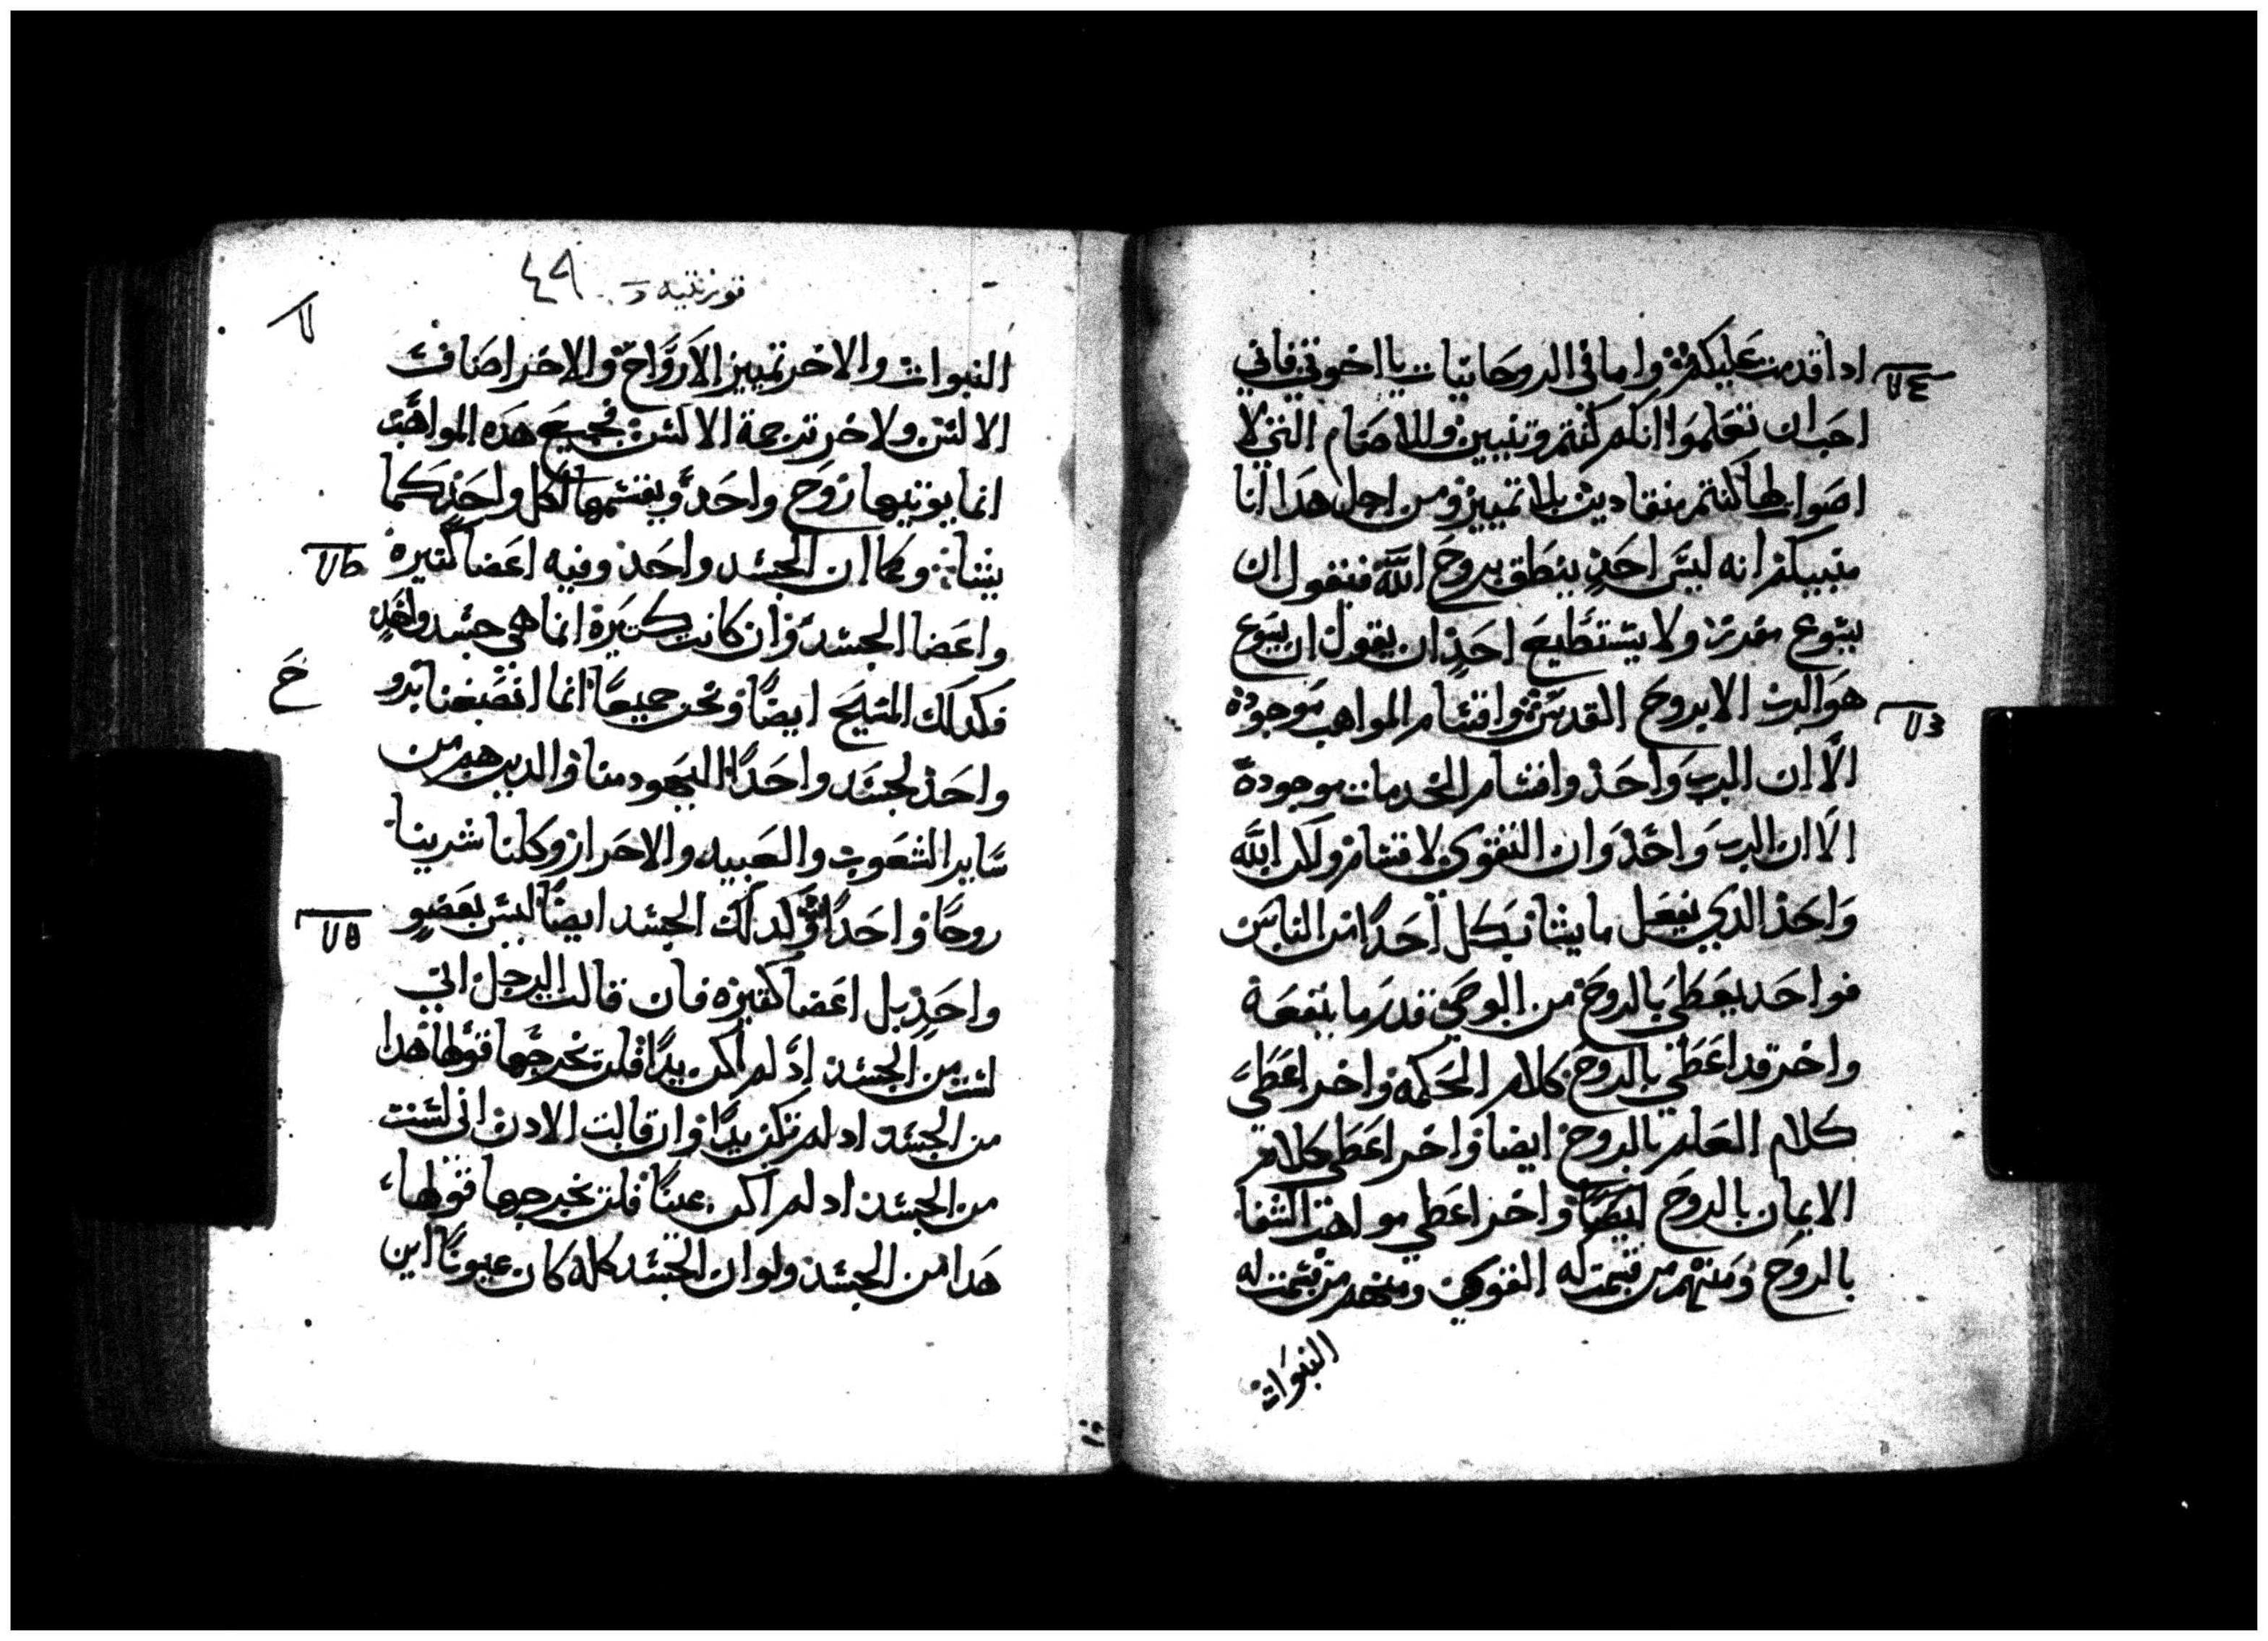 ادا قدمت عليكم واما في الروحانيات يا اخوتي فاني
احب ان تعلموا انكم كنتم وتنيين وللاصنام التي لا
اصوات لها كنتم منقادين بلا تمييز ومن اجل هدا انا
منبيكم انه ليس احد ينطق بروح الله فيقول ان
يسوع مفرز ولا يستطيع احد ان يقول ان يسوع
هو الرب الا بروح القدس واقسام المواهب موجودة
الا ان الرب واحد واقسام الخدمات موجودة
الا ان الرب واحد وان القوى لاقسام ولكن الله
واحد الدي يفعل ما يشا بكل احدا من الناس
فواحد يعطي بالروح من الوحي قدر ما ينفعه
واخر قد اعطي بالروح كلام الحكمه واخر اعطي
كلام العلم بالروح ايضا واخر اعطي كلام
الايمان بالروح ايضا واخر اعطي مواهب الشفا
بالروح ومنهم من قسمت له القوى ومنهم من قسمت له
النبوات
قورنتيه
٤٩
النبوات والاخر تمييز الارواح والاخر اصناف
الالسن ولاخر ترجمة الالسن فجميع هده المواهب
انما يوتيها روح واحد ويقسمها لكل واحد كما
يشا وكما ان الجسد واحد وفيه اعضا كتيره
واعضا الجسد وان كانت كتيرة انما هي جسد واحد
فكدلك المسيح ايضا ونحن جميعا انما انصبغنا بروح
واحد لجسد واحدا اليهود منا والدين هم من
ساير الشعوب والعبيد والاحرار وكلنا شربنا
روحا واحدا وكدلك الجسد ايضا ليس بعضو
واحد بل اعضا كتيره فان قالت الرجل اني
لست من الجسد اد لم اكن يدا فلن تخرجها قولها هدا
من الجسد اد لم تكن يدا وان قالت الادن اني لست
من الجسد اد لم اكن عينا فلن تخرجها قولها
هدا من الجسد ولو ان الجسد كله كان عيونا اين